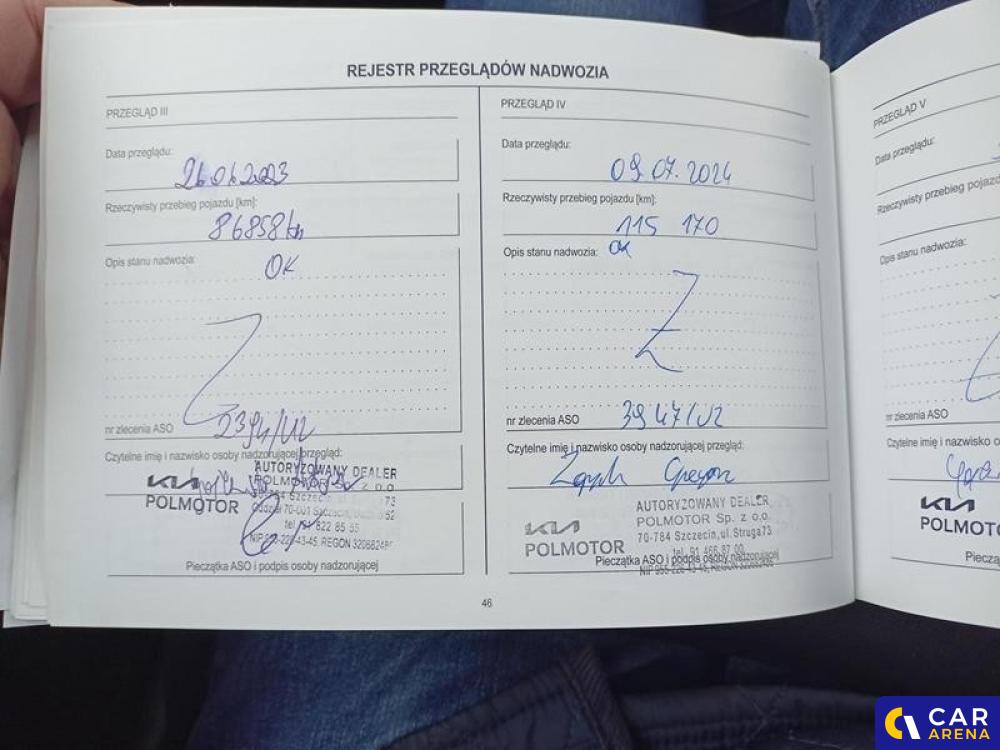 REJESTR PRZEGLĄDÓW NADWOZIA
PRZEGLĄD III
Data przeglądu:
Rzeczywisty przebieg pojazdu [km]:
86858km
Opis stanu nadwozia:
OK
nr zlecenia ASO
Czytelne imię i nazwisko osoby nadzorującej przegląd:
KIA
POLMOTOR
AUTORYZOWANY DEALER
POLMOTOR Sp. z o.o.
Pieczątka ASO i podpis osoby nadzorującej
PRZEGLĄD IV
Data przeglądu:
09.07.2024
Rzeczywisty przebieg pojazdu [km]:
115 170
Opis stanu nadwozia: OK
nr zlecenia ASO 3947/U2
Czytelne imię i nazwisko osoby nadzorującej przegląd:
KIA
POLMOTOR
AUTORYZOWANY DEALER
POLMOTOR Sp. z o.o.
70-784 Szczecin, ul. Struga 73
tel. 91 466 87 00
Pieczątka ASO i podpis osoby nadzorującej
46
PRZEGLĄD V
Data przeglądu:
Rzeczywisty przebieg
Opis stanu nadwozia:
nr zlecenia ASO
Czytelne imię i nazwisko
KIA
POLMOTOR
CAR
ARENA